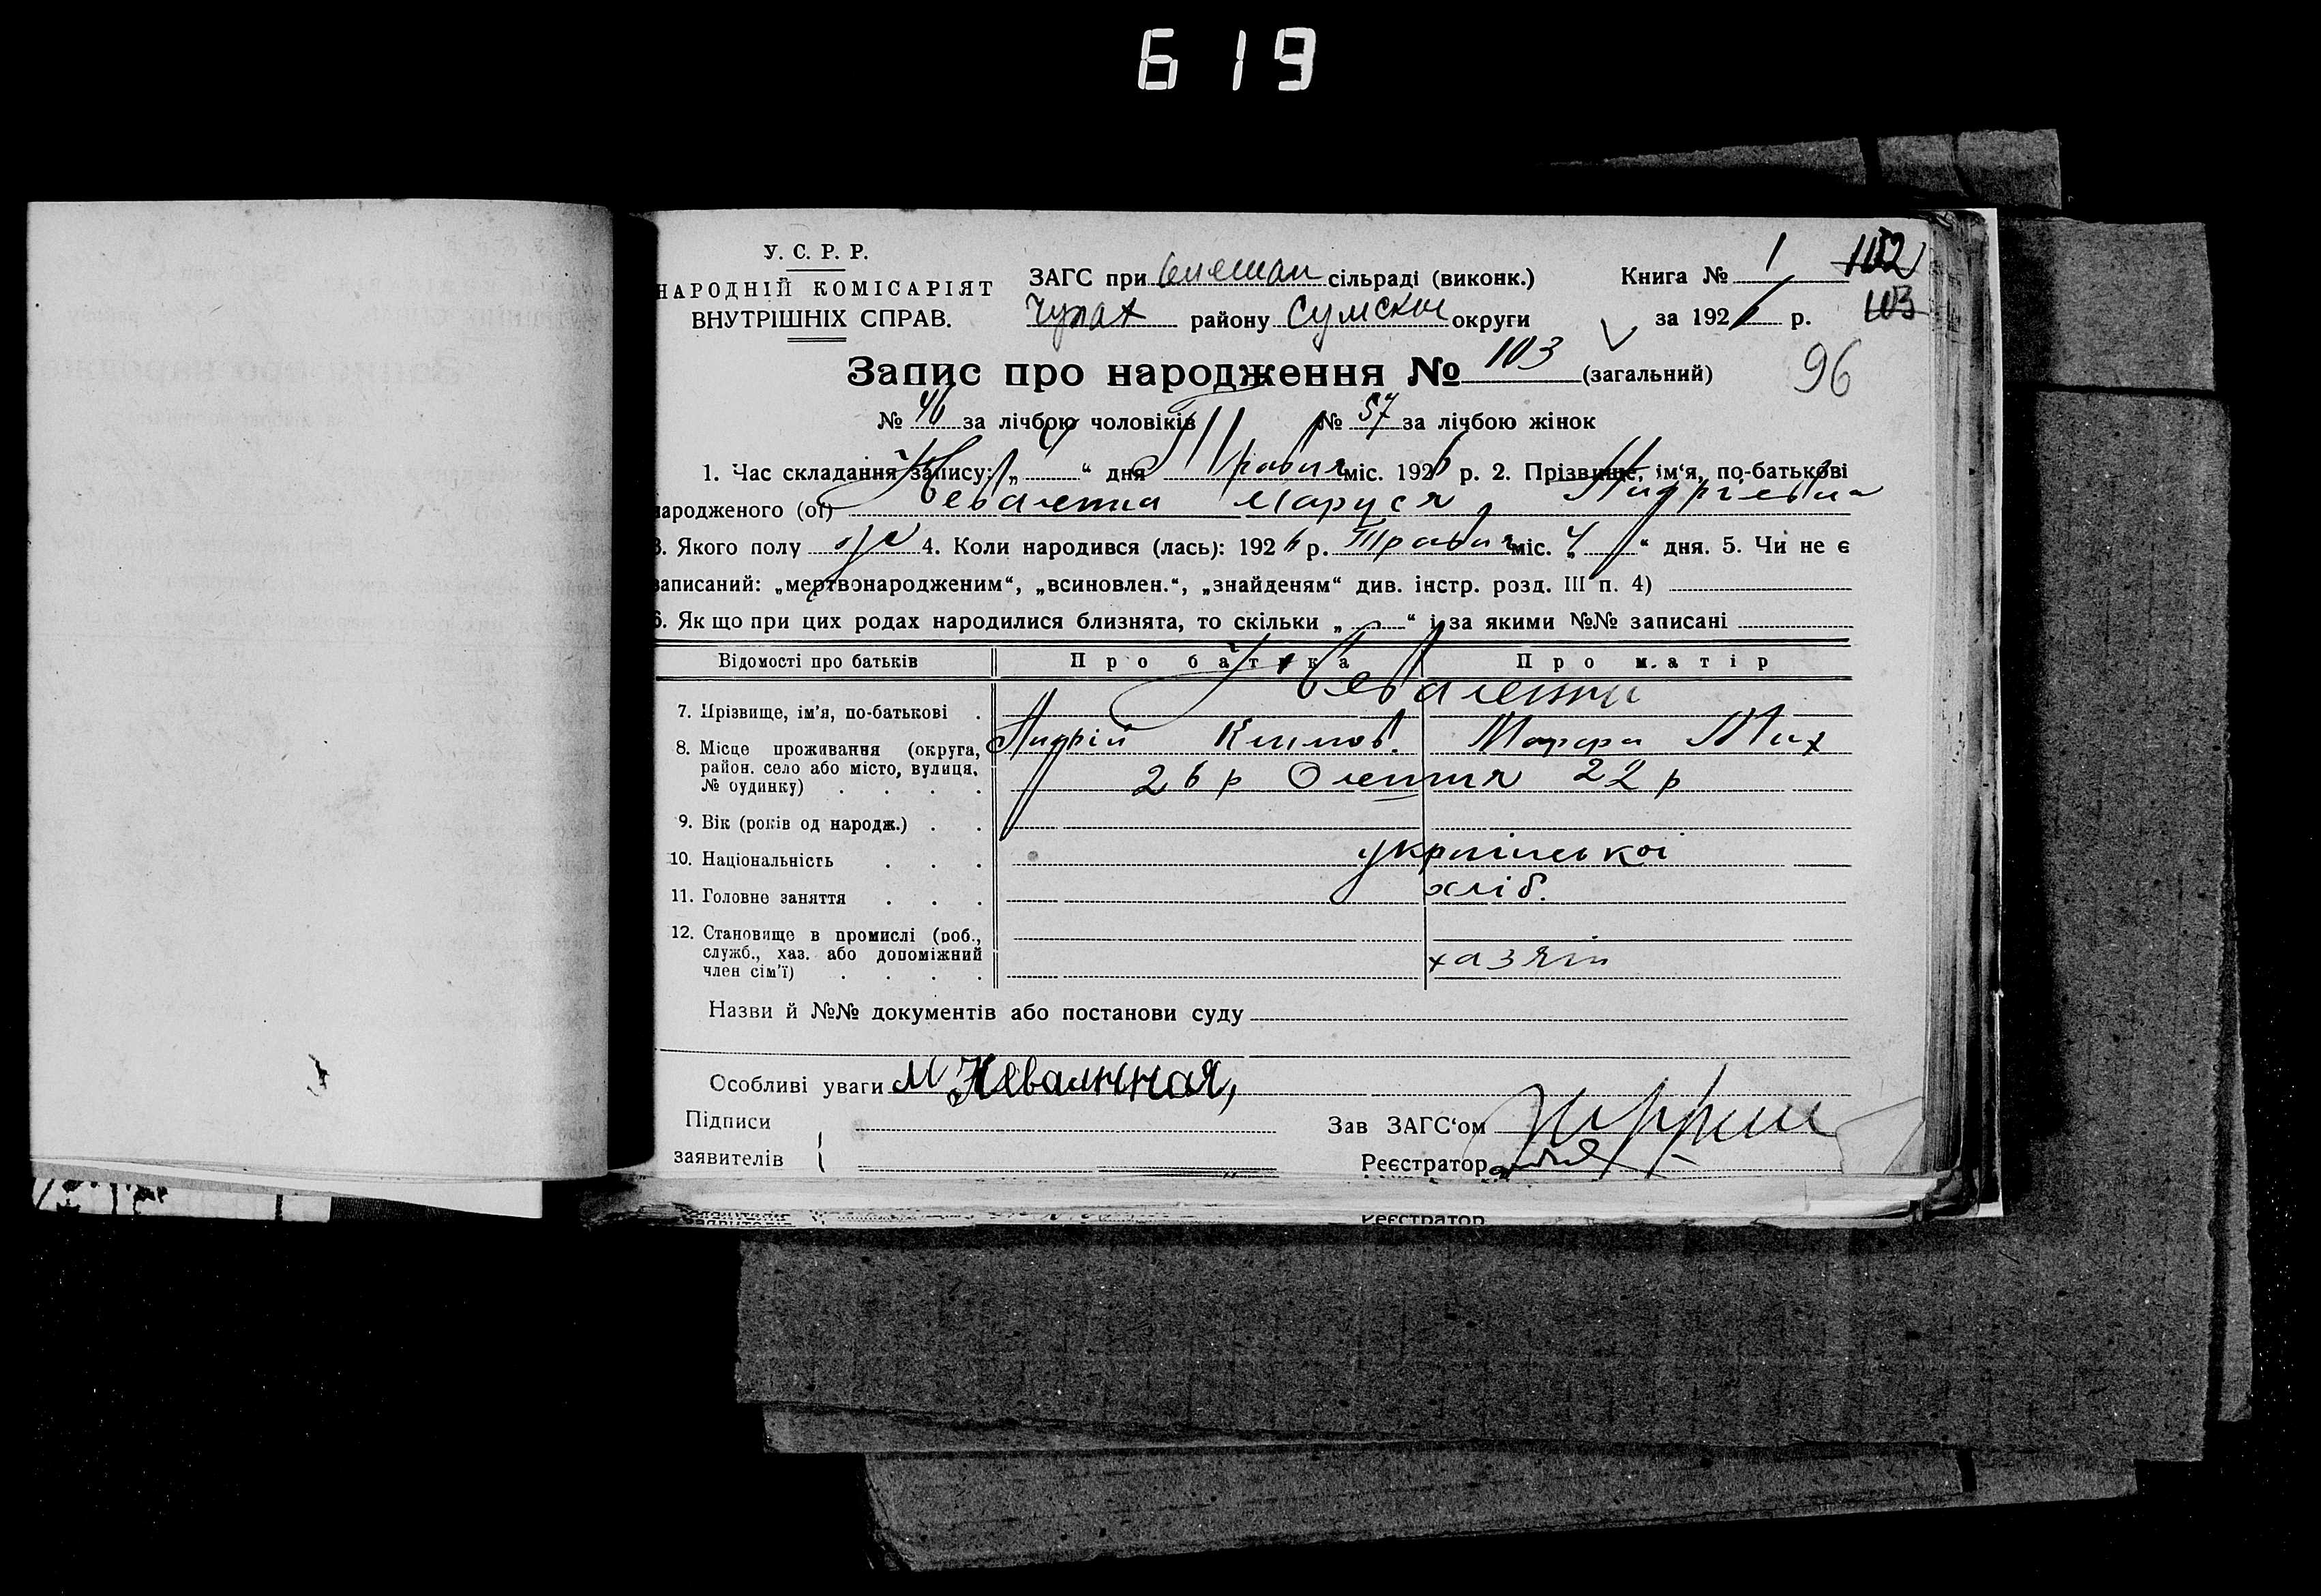 619
У. С. Р. Р.
НАРОДНІЙ КОМІСАРІЯТ
ВНУТРІШНІХ СПРАВ.
ЗАГС при сільраді (виконк.)
Чупах району Сумской округи
Книга № 1
за 1926 р.
102
103
96
Запис про народження № 103 (загальний)
№ 46 за лічбою чоловіків № 57 за лічбою жінок
1. Час складання запису: „ 4 “ дня Травня міс. 1926 р. 2. Прізвище, ім‘я, по-батькові
народженого (ої) Маруся Андріевна
3. Якого полу ж 4. Коли народився (лась): 1926 р. Травня міс. „ 4 “ дня. 5. Чи не є
записаний: „мертвонародженим“, „всиновлен.“, „знайденям“ див. інстр. розд. III п. 4)
6. Як що при цих родах народилися близнята, то скільки „ “ і за якими №№ записані
Відомості про батьків Про батька Про матір
7. Прізвище, ім'я, по-батькові
8. Місце проживання (округа, Андрій Клімов. Марфа Мих
район. село або місто, вулиця,
№ будинку) 26 р 22 р
9. Вік (років од народж.)
10. Національність української
11. Головне заняття хліб.
12. Становище в промислі (роб.,
служб., хаз. або допоміжний хазяїн
член сім'ї)
Назви й №№ документів або постанови суду
Особливі уваги М Невалнная,
Підписи
заявителів
Зав ЗАГС‘ом
Реєстратор
Реєстратор